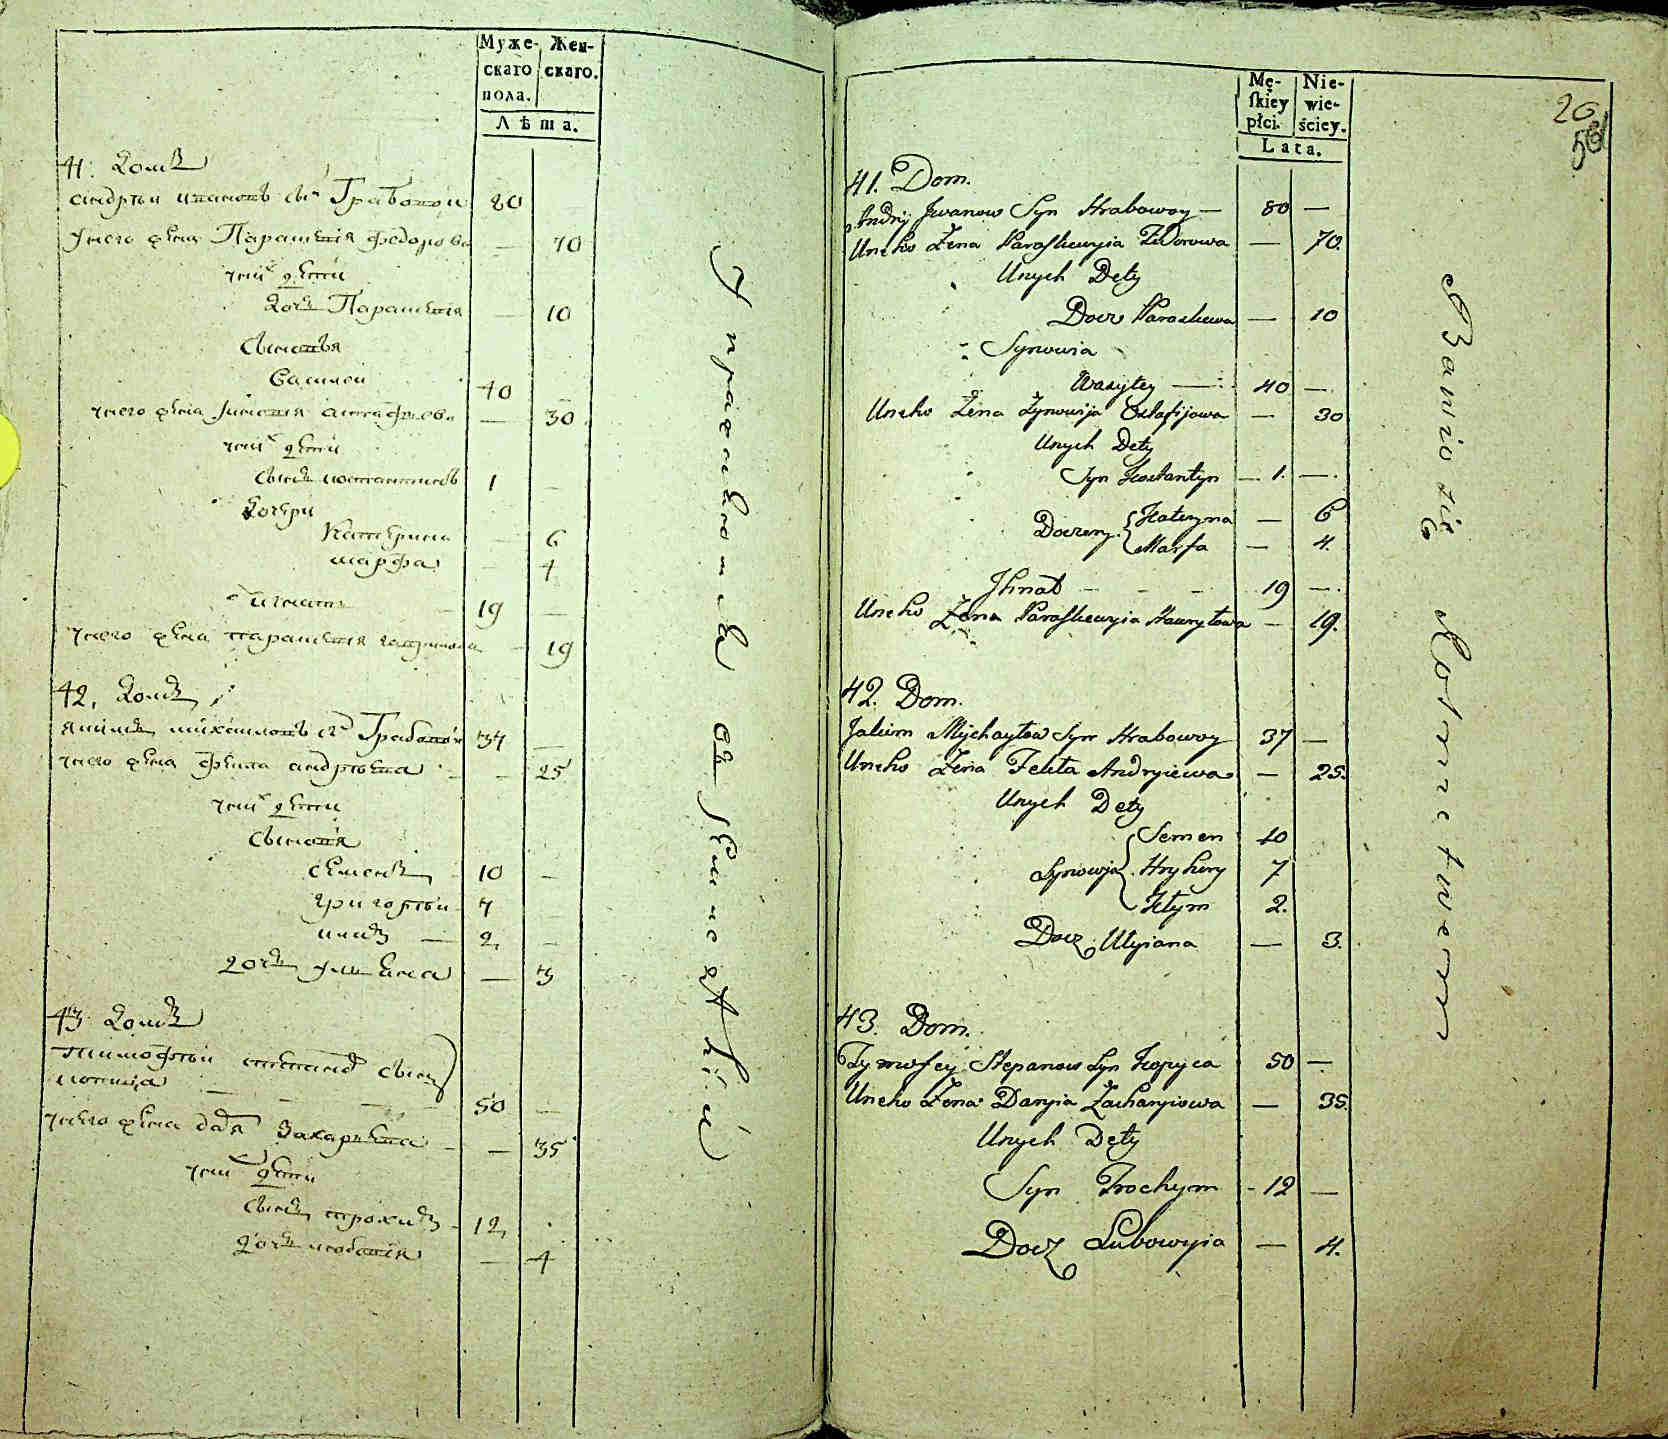 Муже- Жен-
скаго скаго.
пола.
Лѣта.
41: Домъ
Андрѣй Ивановъ сы Грабовой 80
У него жена Параскевія Федорова — 70
У них дѣти
Дочь Параскевія — 10
Сыновья
Василей 40 —
У него жена Зиновія Астафиева — 30
У них дѣти
Сынъ Костантинъ 1 —
Дочери
Катерина — 6
Марфа — 4
Игнатъ 19 —
У него жена Параскевия Гаврилова — 19
42, Домъ
Якимъ Михайловъ с. Грабовой 37 —
У него жена Фекла Андрѣева — 25
У них дѣти
Сыновя
Семенъ 10 —
Григорѣй 7
Климъ — 2,
Дочь Улиана — 3
43 Домъ
Тимофѣй Степановъ сынъ
Копица 50 —
У него жена Дарʼя Захариева — 35
У них дѣти
Сынъ Трохимъ 12,
Дочь Любовія — 4
Упражняется въ Земледѣліи
20
56
Mę- Nie-
skiey wie-
płci. ściey.
Lata.
41. Dom.
Andrij Jwanow Syn Hrabowoy — 80 —
Uneho Żena Paraskewyia Fedorowa — 70.
Unych Dety
Docz Paraskewa — 10
Synowia
Wasyley — 40 —
Uneho Żena Zynowija Ostafijowa — 30
Unych Dety
Syn Kostantyn — 1. —
Doczery Kateryna — 6
Marfa — 4.
Jhnat - - - 19 —
Uneho Żena Paraskewyia Hawryłowa — 19.
42. Dom.
Jakim Mychayłow Syn Hrabowoy 37 —
Uneho Żena Fekła Andryiewa — 25.
Unych Dety
Semen 10
Synowja Hryhory 7
Kłym 2.
Docz Ulyiana — 3.
43. Dom.
Tymofey Stepanow Syn Kopyca 50 —
Uneho Żena Daryia Zacharyiowa — 35.
Unych Dety
Syn Trochym - 12 —
Docz Lubowyia — 4.
Bawio się Rolnictwem